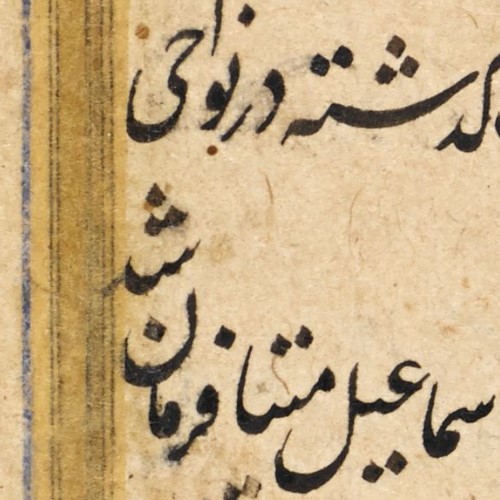 گذشته در نواحی
سماعیل متنافرمان شد